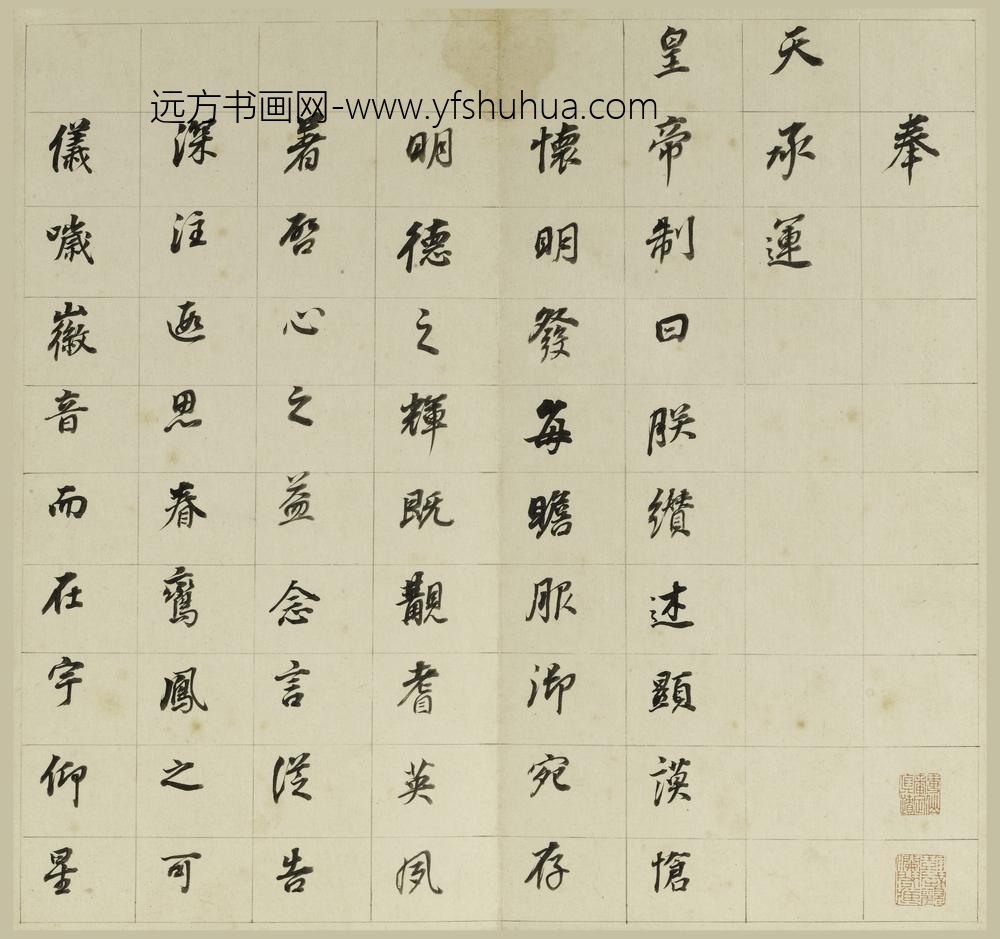 远方书画网-www.yfshuhua.com
奉
天承運
皇帝制曰朕纘述顯謨愴
懷明發每瞻服御宛存
明德之輝既覯耆英夙
著啓心之益念言從告
深注遐思眷鸞鳳之可
儀噦徽音而在宇仰星